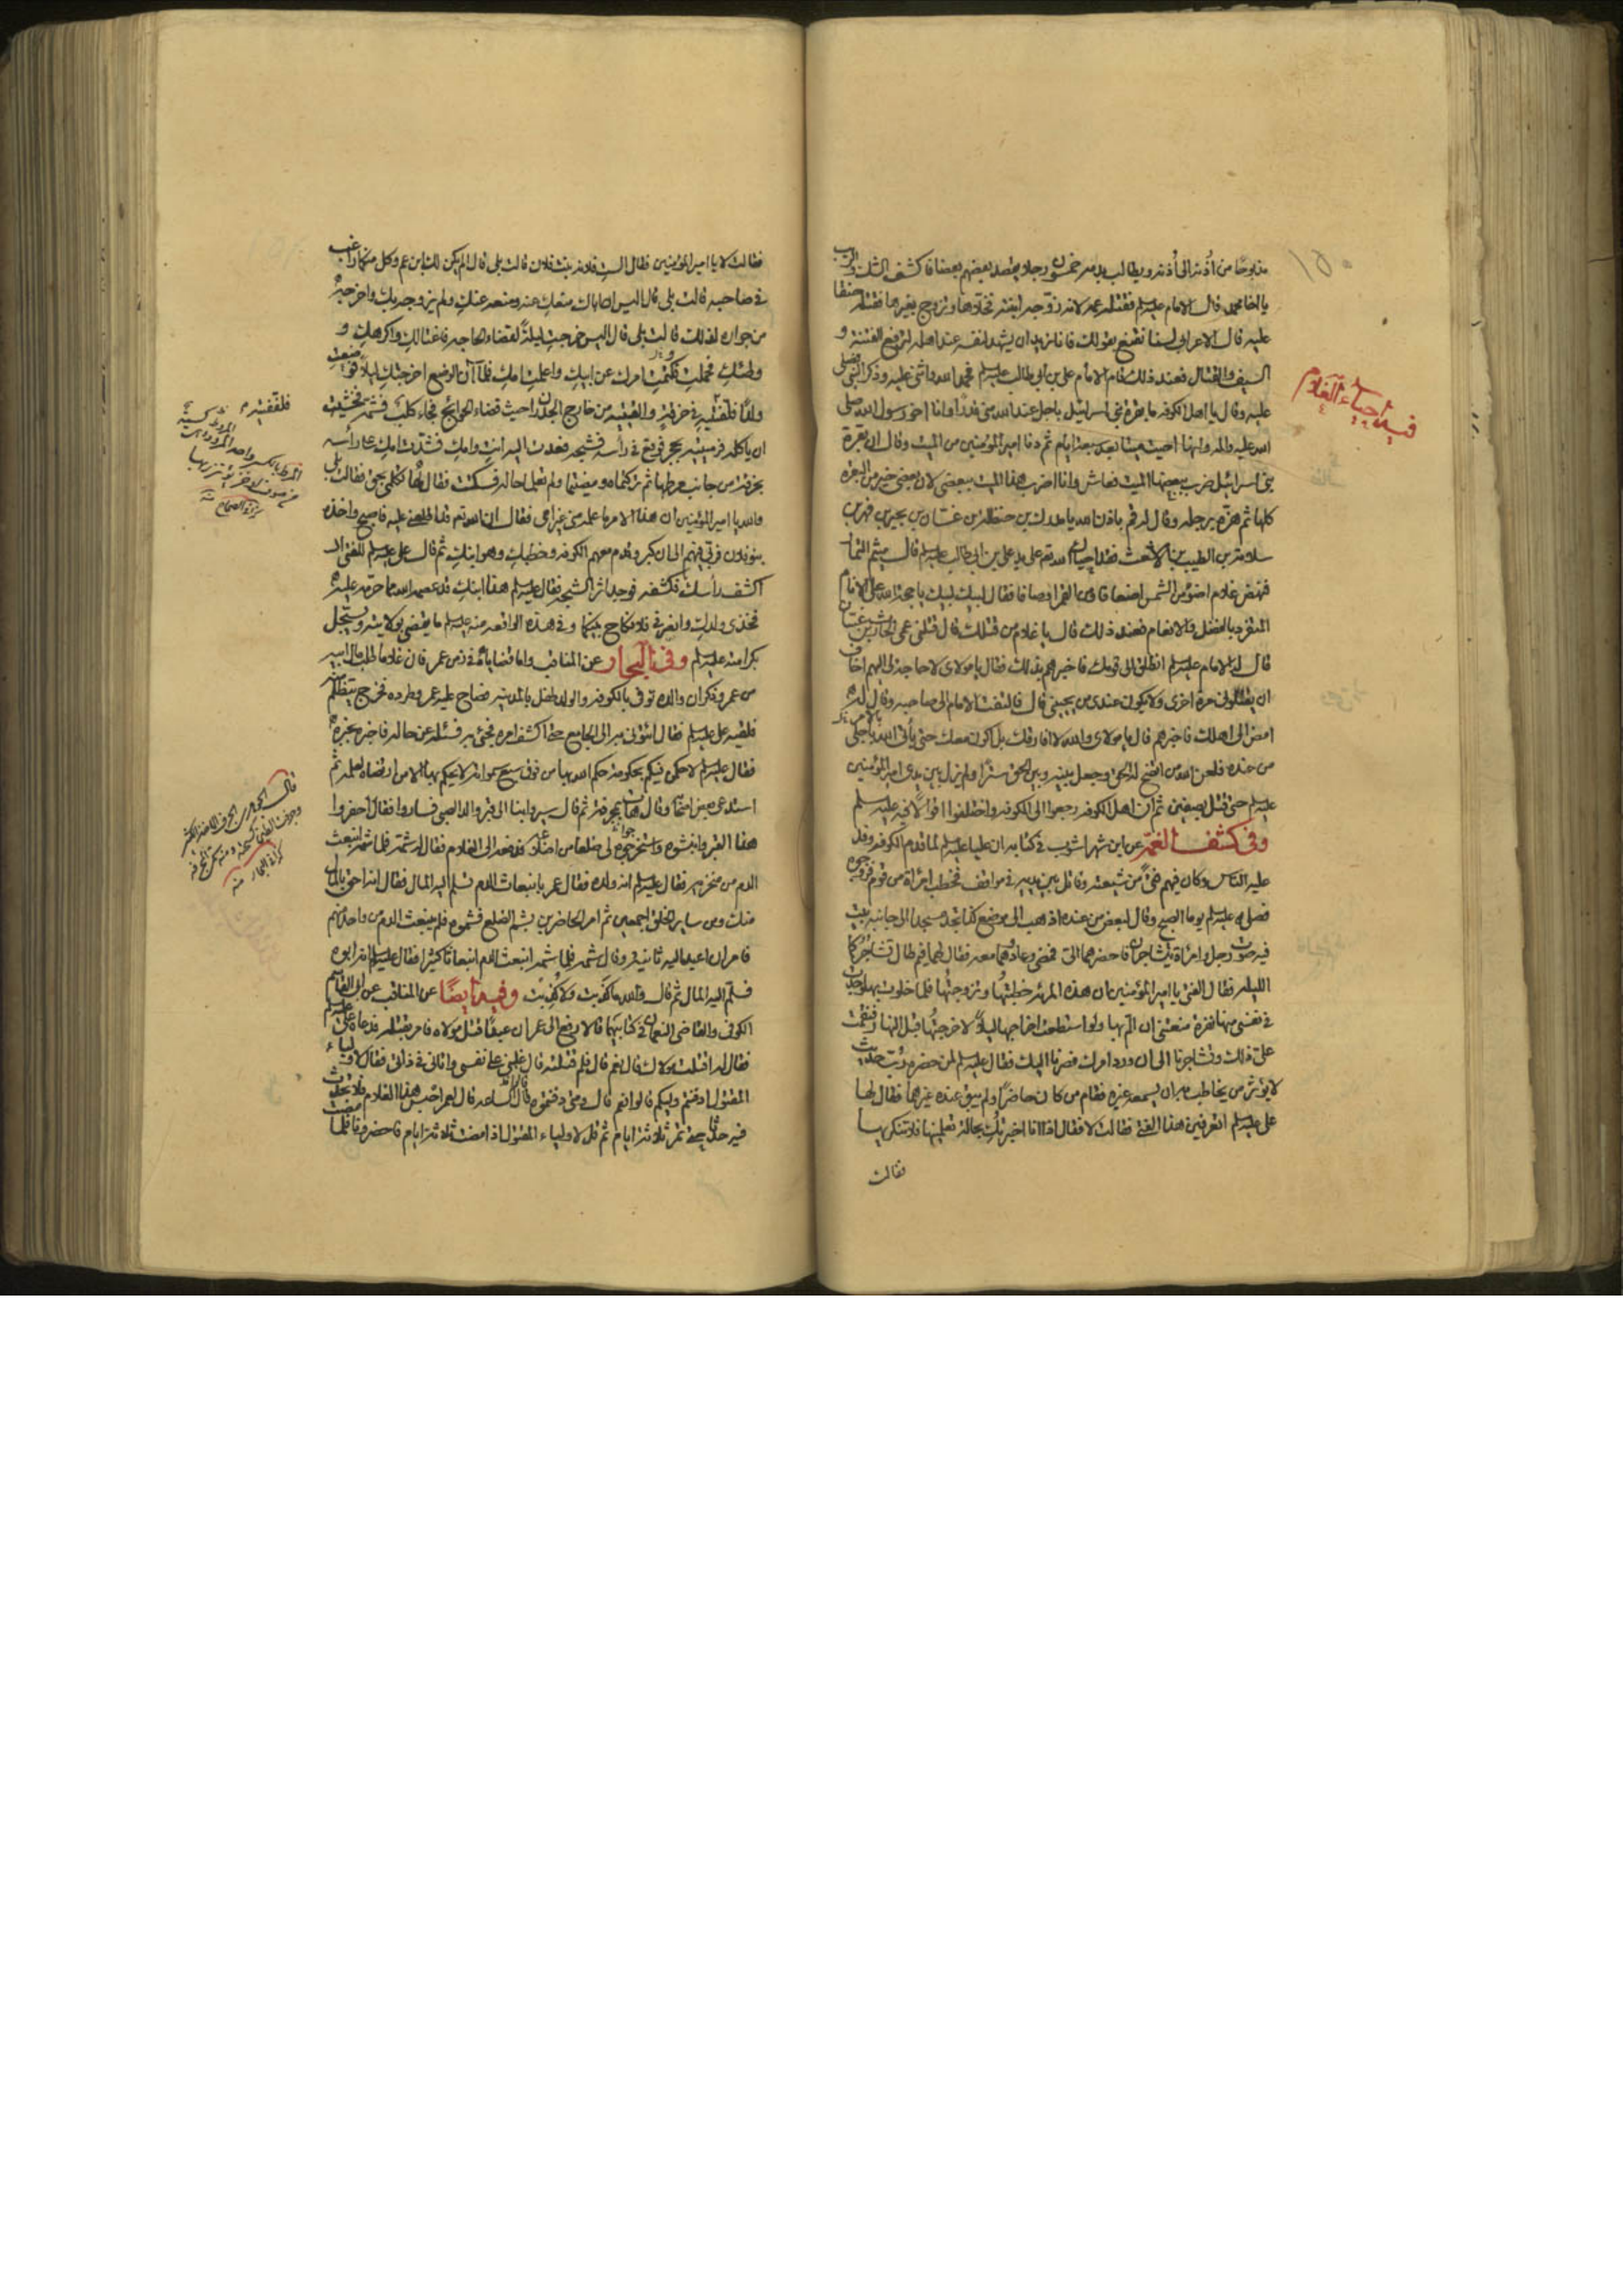 مذبوحا من أذنه الى أذنه ويطالب بدمه خمسون رجلا يقصد بعضهم بعضا فاكشف الشك والريب
يا اخا محمد قال الامام عليه السلم قتله عمه لانه زوجه ابنته فخلاها وتزوج بغيرها فقتله حنقا
عليه قال الاعرابي لسنا نقنع بقولك فانا نريد ان يشهد لنفسه عند اهله لترفع الفتنة و
السيف والقتال فعند ذلك قام الامام علي بن ابي طالب عليه السلم فحمد الله واثنى عليه وذكر النبي فصلى
عليه وقال يا اهل الكوفه ما بقرة بني اسرائيل باجل عند الله مني قدرا وانا اخو رسول الله صلى
الله عليه واله وانها احيت ميتا بعد سبعة ايام ثم دنا امير المؤمنين من الميت وقال ان بقرة
بني اسرائيل ضرب ببعضها الميت فعاش وانا اضرب هذا الميت ببعضي لان بعضي خير من البقره
كلها ثم هزه برجله وقال له قم باذن الله يا مدرك بن حنظله بن غسان بن بحير بن فهر بن
سلامة بن الطيب بن الاشعث فقد احياك الله تع على يد علي بن ابي طالب عليه السلم قال ميثم التمار
فنهض غلام اضوء من الشمس اضعافا ومن القمر اوصافا فقال لبيك لبيك يا حجة الله على الانام
المتفرد بالفضل والانعام فعند ذلك قال يا غلام من قتلك قال قتلني عمي الحارث بن غسان
قال له الامام عليه السلم انطلق الى قومك فاخبرهم بذلك فقال يا مولاي لا حاجة لي اليهم اخاف
ان يقتلوني مرة اخرى ولا يكون عندي من يحييني قال فالتفت الامام الى صاحبه وقال له
امض الى اهلك فاخبرهم قال يا مولاي والله لا افارقك بل اكون معك حتى يأتي الله باجلي
من عنده فلعن الله من اتضح له الحق وجعل بينه وبين الحق سترا ولم يزل بين يدي امير المؤمنين
عليه السلم حتى قتل بصفين ثم ان اهل الكوفه رجعوا الى الكوفه واختلفوا اقوالا فيه عليه السلم
وفي كشف الغمه عن ابن شهراشوب في كتابه ان عليا عليه السلم لما قدم الكوفه وفد
عليه الناس وكان فيهم فتى من شيعته وقاتل بين يديه في مواقف فخطب امرأة من قوم فزوجوه
فصلى عليه السلم يوما الصبح وقال لبعض من عنده اذهب الى موضع كذا تجد مسجدا الى جانبه بيت
فيه صوت رجل وامرأة يتشاجران فاحضرهما الي فمضى وعاد وهما معه فقال لهما فيم طال تشاجركما
الليله فقال الفتى يا امير المؤمنين ان هذه المرأه خطبتها وتزوجتها فلما خلوت بها وجدت
في نفسي منها نفرة منعتني ان الم بها ولو استطعت اخراجها ليلا لاخرجتها قبل النهار فنقمت
علي ذلك وتشاجرنا الى ان ورد امرك فصرنا اليك فقال عليه السلم لمن حضره رب حديث
لا يؤثر من يخاطب به ان يسمعه غيره فقام من كان حاضرا ولم يبق عنده غيرهما فقال لها
علي عليه السلم اتعرفين هذا الفتى فقالت لا فقال اذا انا اخبرتك بحالة تعلمينها فلا تنكريها
فقالت
فيه احياء الغلام
فقالت لا يا امير المؤمنين فقال الست فلانة بنت فلان قالت بلى قال الم يكن لك ابن عم وكل منكما راغب
في صاحبه قالت بلى قال اليس ان اباك منعك عنه ومنعه عنك ولم يزوجه بك واخرجه
من جواره لذلك قالت بلى قال اليس خرجت ليلة لقضاء الحاجه فاغتالك واكرهك و
وطئك فحملت وكتمت امرك عن ابيك واعلمت امك فلما آن الوضع اخرجتك ليلا فوضعت
ولدا فلففتيه في خرقة والقيتيه من خارج الجدران حيث قضاء الحوائج فجاء كلب فشمه فخشيت
ان ياكله فرميتيه بحجر فوقع في رأسه فشجه فعدت اليه انت وامك فشدت امك رأسه
بخرقة من جانب مرطها ثم تركتماه ومضيتما ولم تعلما حاله فسكتت فقال لها تكلمي بحق فقالت بلى
والله يا امير المؤمنين ان هذا الامر ما علمه مني غير امي فقال ان الله تع قد اطلعني عليه فاصبح واخذه
بنو فلان فربي فيهم الى ان كبر وقدم معهم الكوفه وخطبك وهو ابنك ثم قال علي عليه السلم للفتى
اكشف رأسك فكشفه فوجد اثر الشجه فقال عليه السلم هذا ابنك قد عصمه الله مما حرمه عليه
فخذي ولدك وانصرفي فلا نكاح بينكما وفي هذه الواقعه منه عليه السلم ما يقضي بولايته ويسجل
بكرامته عليه السلم وفي البحار عن المناقب واما قضاياه في زمن عمر فان غلاما طلب مال ابيه
من عمر وذكر ان والده توفي بالكوفه والولد طفل بالمدينه فصاح عليه عمر وطرده فخرج يتظلم
فلقيه علي عليه السلم فقال ائتوني به الى الجامع حتى اكشف امره فجئ به فسئله عن حاله فاخبره بخبره
فقال عليه السلم لاحكمن فيكم بحكومة حكم الله بها من فوق سبع سمواته لا يحكم بها الا من ارتضاه لعلمه ثم
استدعى بعض اصحابه وقال هات بمجرفة ثم قال سيروا بنا الى قبر والد الصبي فساروا فقال احفروا
هذا القبر وانبشوه واستخرجوا لي ضلعا من اضلاعه فدفعه الى الغلام فقال له شمه فلما شمه انبعث
الدم من منخريه فقال عليه السلم انه ولده فقال عمر بانبعاث الدم تسلم اليه المال فقال انه احق بالمال
منك ومن ساير الخلق اجمعين ثم امر الحاضرين بشم الضلع فشموه فلم ينبعث الدم من واحد منهم
فامر ان اعيد اليه ثانية وقال شمه فلما شمه انبعث الدم انبعاثا كثيرا فقال عليه السلم انه ابوه
فسلم اليه المال ثم قال والله ما كذبت ولا كذبت وفيه ايضا عن المناقب عن ابي القاسم
الكوفي والقاضي النعمان في كتابيهما قالا رفع الى عمر ان عبدا قتل مولاه فامر بقتله فدعاه علي عليه السلم
فقال له اقتلت مولاك قال نعم قال فلم قتلته قال غلبني على نفسي واتاني في ذاتي فقال لاولياء
المقتول ادفنتم وليكم قالوا نعم قال ومتى دفنتموه قالوا الساعه قال لعمر احبس هذا الغلام فلا تحدث
فيه حدثا حتى تمر ثلاثة ايام ثم قل لاولياء المقتول اذا مضت ثلاثة ايام فاحضرونا فلما مضت